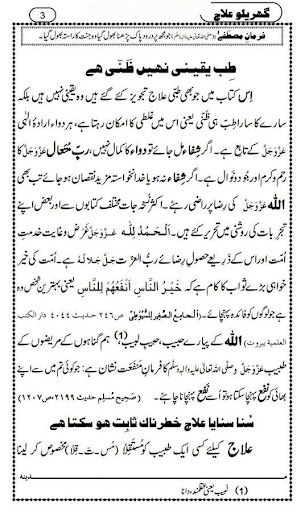 گھریلو علاج
3
فرمانِ مصطفےٰ (صلی اللہ تعالیٰ علیہ والہٖ وسلم) جو مجھ پر درود پاک پڑھنا بھول گیا وہ جنت کا راستہ بھول گیا۔
طِب یقینی نہیں ظَنّی ہے
اِس کتاب میں جو بھی طبّی علاج تجویز کئے گئے ہیں وہ یقینی نہیں ہیں بلکہ
سارے کا سارا طِب ہی ظنّی ہے یعنی اس میں غلطی کا امکان رہتا ہے، ہر دوا ارادۂ الٰہی
عَزَّوَجَلَّ کے تابع ہے۔ اگر شِفاء مل جائے تو دواء کا کمال نہیں، ربِّ مُتَعال عَزَّوَجَلَّ کا
رحم و کرم اور جُود و نَوال ہے۔ اگر شِفاء نہ ہو یا خدانخواستہ مزید نقصان ہو جائے تب بھی
اللہ عَزَّوَجَلَّ کی رضا پر راضی رہئے۔ اکثر نسخہ جات مختلف کتابوں سے اور بعض اپنے
تجربات کی روشنی میں تحریر کئے ہیں۔ اَلْحَمْدُ لِلّٰہ عَزَّوَجَلَّ غرض و غایت خدمتِ
اُمّت اور اس کے ذریعے حصولِ رضائے ربُّ العزّت جَلَّ جَلَالُہٗ ہے۔ نفعِ اُمّت
خواہی بڑے ثواب کا کام ہے کہ خَیْرُ النَّاسِ اَنْفَعُھُمْ لِلنَّاسِ یعنی بہترین شخص وہ
ہے جو لوگوں کو فائدہ پہنچائے۔ (اَلْجامِعُ الصَّغِیر لِلسُّیُوْطِیّ ص۲۴۶ حدیث ۴۰۴۴ دار الکتب
العلمیۃ بیروت) اللہ کے پیارے حبیب، حبیبِ لبیب (1)، ہم گناہوں کے مریضوں کے
طبیب عَزَّوَجَلَّ و صلی اللہ تعالیٰ علیہ والہٖ وسلم کا فرمانِ مَنْفَعَت نشان ہے: جو کوئی تم میں سے اپنے
بھائی کو نفع پہنچا سکتا ہو تو اُسے نفع پہنچانا چاہئے۔ (صَحِیح مُسلِم حدیث ۲۱۹۹، ص۱۲۰۷)
سُنا سنایا علاج خطرناک ثابت ہو سکتا ہے
علاج کیلئے کسی ایک طبیب کو مُستَقِلّاً (مُس۔تَ۔قِلْاً) مخصوص کر لینا
(1) لبیب یعنی عقلمند، دانا